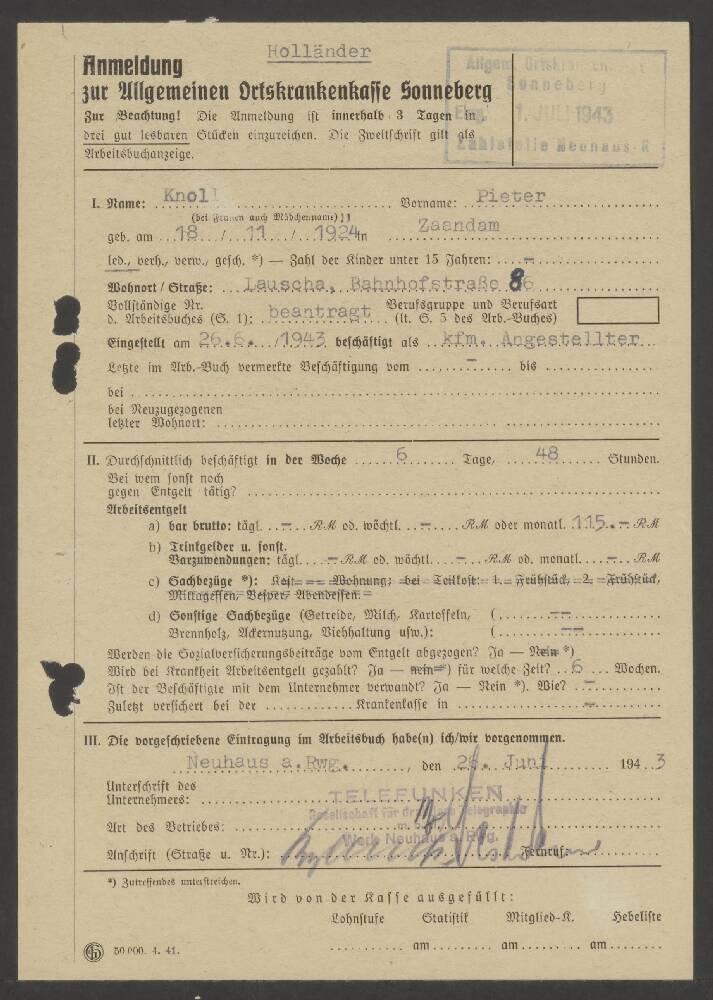 Holländer
Anmeldung
zur Allgemeinen Ortskrankenkasse Sonneberg
Zur Beachtung! Die Anmeldung ist innerhalb 3 Tagen in
drei gut lesbaren Stücken einzureichen. Die Zweitschrift gilt als
Arbeitsbuchanzeige.
Allgem. Ortskrankenkasse
Sonneberg
Eing. 1. JULI 1943
Zahlstelle Neuhaus-R
I. Name: Knoll Vorname: Pieter
(bei Frauen auch Mädchenname)
geb. am 18. / 11. / 1924 in Zaandam
led., verh., verw., gesch. *) — Zahl der Kinder unter 15 Jahren: –
Wohnort / Straße: Lauscha, Bahnhofstraße 86
Vollständige Nr. Berufsgruppe und Berufsart
d. Arbeitsbuches (S. 1): beantragt (lt. S. 5 des Arb.-Buches)
Eingestellt am 26.6. /1943 beschäftigt als kfm. Angestellter
Letzte im Arb.-Buch vermerkte Beschäftigung vom – bis
bei
bei Neuzugezogenen
letzter Wohnort:
II. Durchschnittlich beschäftigt in der Woche 6 Tage, 48 Stunden.
Bei wem sonst noch
gegen Entgelt tätig?
Arbeitsentgelt
a) bar brutto: tägl. – RM od. wöchtl. – RM oder monatl. 115.– RM
b) Trinkgelder u. sonst.
Barzuwendungen: tägl. – RM od. wöchtl. – RM od. monatl. – RM
c) Sachbezüge *): Kost – Wohnung; bei Teilkost: 1. Frühstück, 2. Frühstück,
Mittagessen, Vesper, Abendessen.
d) Sonstige Sachbezüge (Getreide, Milch, Kartoffeln, ( --
Brennholz, Ackernutzung, Viehhaltung usw.): ( --
Werden die Sozialversicherungsbeiträge vom Entgelt abgezogen? Ja — Nein *)
Wird bei Krankheit Arbeitsentgelt gezahlt? Ja — Nein *) für welche Zeit? 6 Wochen.
Ist der Beschäftigte mit dem Unternehmer verwandt? Ja — Nein *). Wie? –
Zuletzt versichert bei der Krankenkasse in –
III. Die vorgeschriebene Eintragung im Arbeitsbuch habe(n) ich/wir vorgenommen.
Neuhaus a. Rwg., den 26. Juni 1943
Unterschrift des
Unternehmers: TELEFUNKEN
Gesellschaft für drahtlose Telegraphie
Art des Betriebes: m. b. H.
Werk Neuhaus a. Rwg.
Anschrift (Straße u. Nr.): Fernruf
*) Zutreffendes unterstreichen.
Wird von der Kasse ausgefüllt:
Lohnstufe Statistik Mitglied-K. Hebeliste
am am am
50 000. 4. 41.